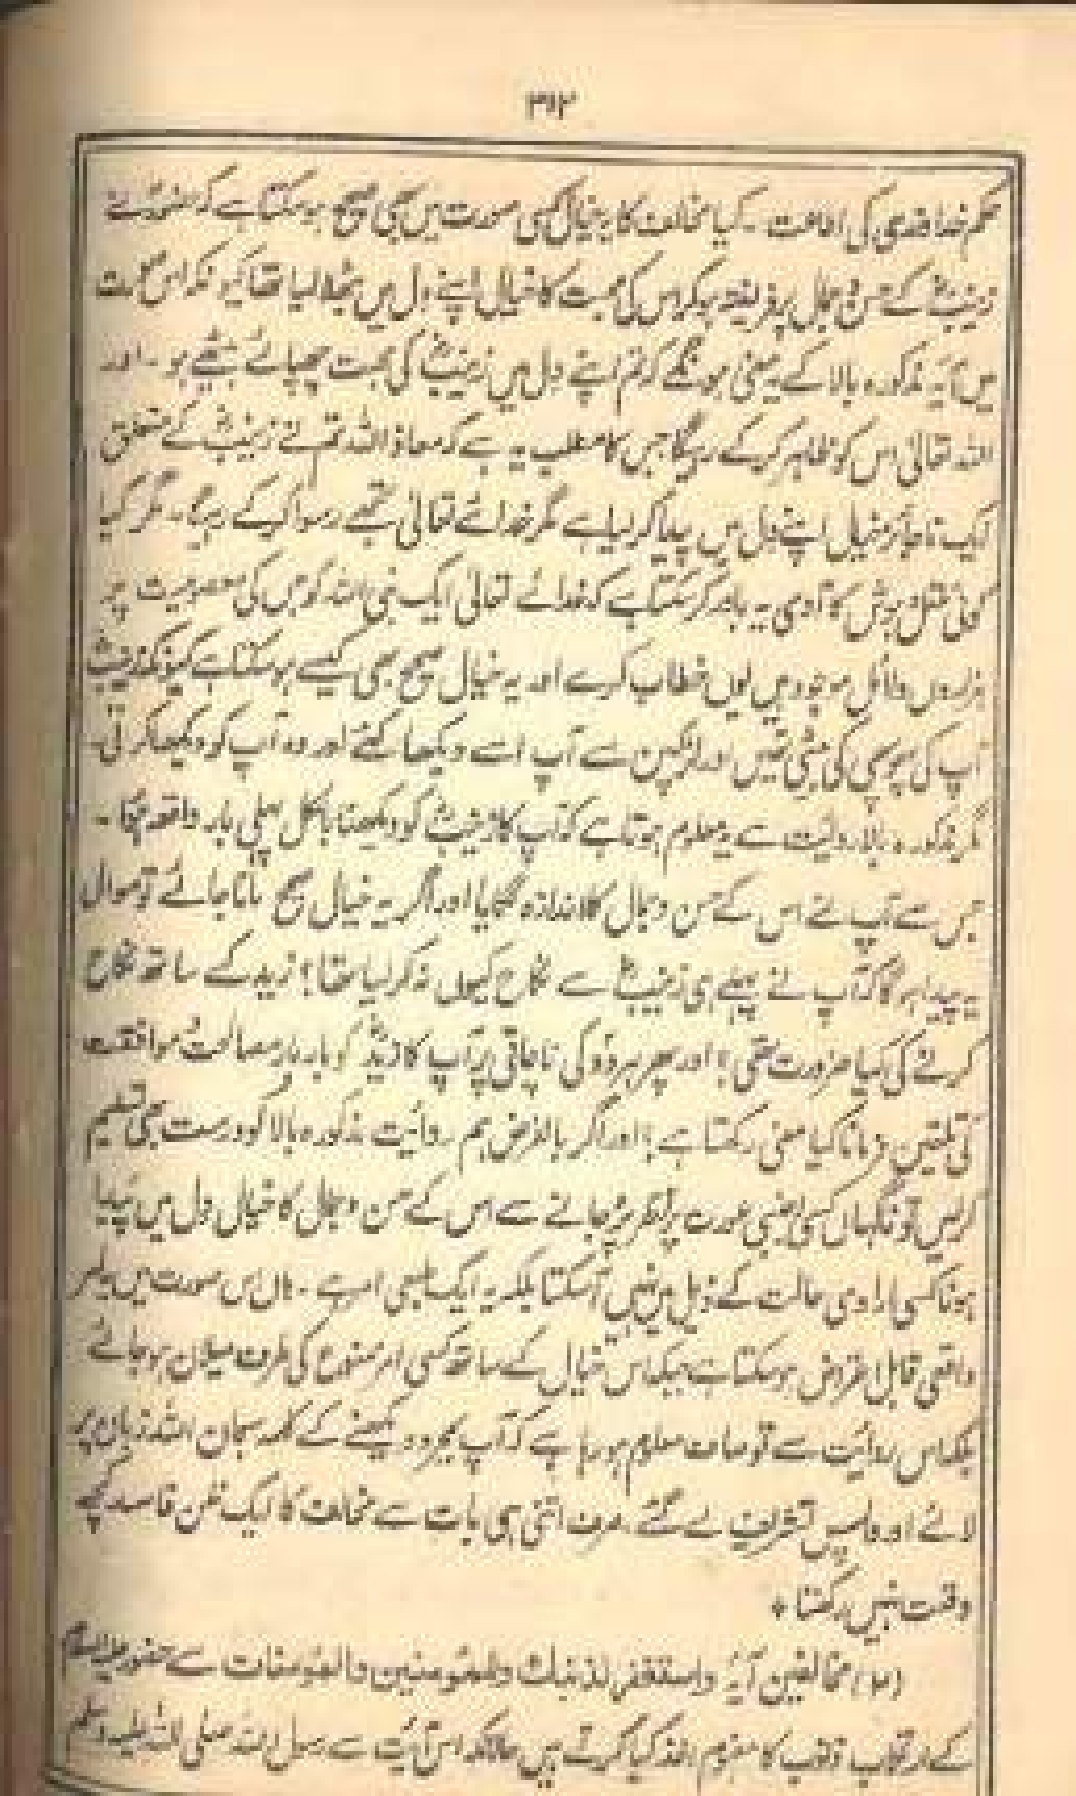 ۳۱۲
حکم خداوندی کی اطاعت ۔ کیا مخالف کا یہ خیال کسی صورت میں بھی صحیح ہو سکتا ہے کہ حضورؐ نے
زینبؓ کے حسن و جمال پر فریفتہ ہو کر اس کی محبت کا خیال اپنے دل میں بٹھا لیا تھا کیونکہ اس صورت
میں آیہ مذکورہ بالا کے یہ معنی ہونگے کہ تم اپنے دل میں زینبؓ کی محبت چھپائے بیٹھے ہو ۔ اور
اللہ تعالیٰ اس کو ظاہر کر کے رہیگا جس کا مطلب یہ ہے کہ معاذ اللہ تم نے زینبؓ کے متعلق
ایک ناجائز خیال اپنے دل میں پیدا کر لیا ہے مگر خدائے تعالیٰ تجھے رسوا کر کے رہیگا ۔ مگر کیا
کوئی عقل و ہوش کا آدمی یہ باور کر سکتا ہے کہ خدائے تعالیٰ ایک نبی اللہ کو جس کی معصومیت پر
ہزاروں دلائل موجود ہیں یوں خطاب کرے اور یہ خیال صحیح بھی کیسے ہو سکتا ہے کیونکہ زینبؓ
آپ کی پھوپھی کی بیٹی تھیں اور لڑکپن سے آپ اسے دیکھا کئے اور وہ آپ کو دیکھا کرتی۔
مگر مذکورہ بالا روایت سے یہ معلوم ہوتا ہے کہ آپ کا زینبؓ کو دیکھنا بالکل پہلی بار واقعہ ہؤا ۔
جس سے آپ نے اس کے حسن و جمال کا اندازہ لگایا اور اگر یہ خیال صحیح مانا جائے تو سوال
یہ پیدا ہو گا کہ آپ نے پہلے ہی زینبؓ سے نکاح کیوں نہ کر لیا تھا؟ زید کے ساتھ نکاح
کرنے کی کیا ضرورت تھی؟ اور پھر ہر دو کی ناچاقی پر آپ کا زیدؓ کو بار بار مصالحت و موافقت
کی تلقین فرمانا کیا معنی رکھتا ہے؟ اور اگر بالفرض ہم روایت مذکورہ بالا کو درست بھی تسلیم
کر لیں تو ناگہاں کسی اجنبی عورت پر نظر پڑ جانے سے اس کے حسن و جمال کا خیال دل میں پیدا
ہونا کسی ارادی حالت کے ذیل میں نہیں آ سکتا بلکہ یہ ایک طبعی امر ہے ۔ ہاں اس صورت میں یہ امر
واقعی قابل اعتراض ہو سکتا ہے جبکہ اس خیال کے ساتھ کسی امر ممنوع کی طرف میلان ہو جائے
بلکہ اس روایت سے تو صاف معلوم ہو رہا ہے کہ آپ بمجرد دیکھنے کے کلمہ سبحان اللہ زبان پر
لائے اور واپس تشریف لے گئے ۔ صرف اتنی ہی بات سے مخالف کا ایک ظن فاسد کچھ
وقعت نہیں رکھتا *
مخالفین آیۂ واستغفر لذنبک وللمؤمنین والمؤمنات سے حضور علیہ السلام
کے ارتکاب ذنوب کا مفہوم اخذ کیا کرتے ہیں حالانکہ اس آیت سے رسول اللہ صلی اللہ علیہ وسلم